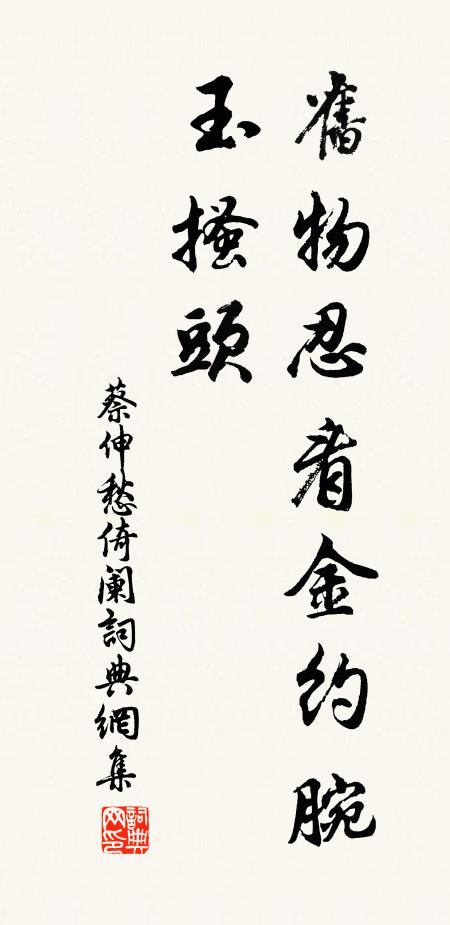 舊物忍看金約腕
玉搔頭
蔡伸愁倚闌詞典網集
詞典網印